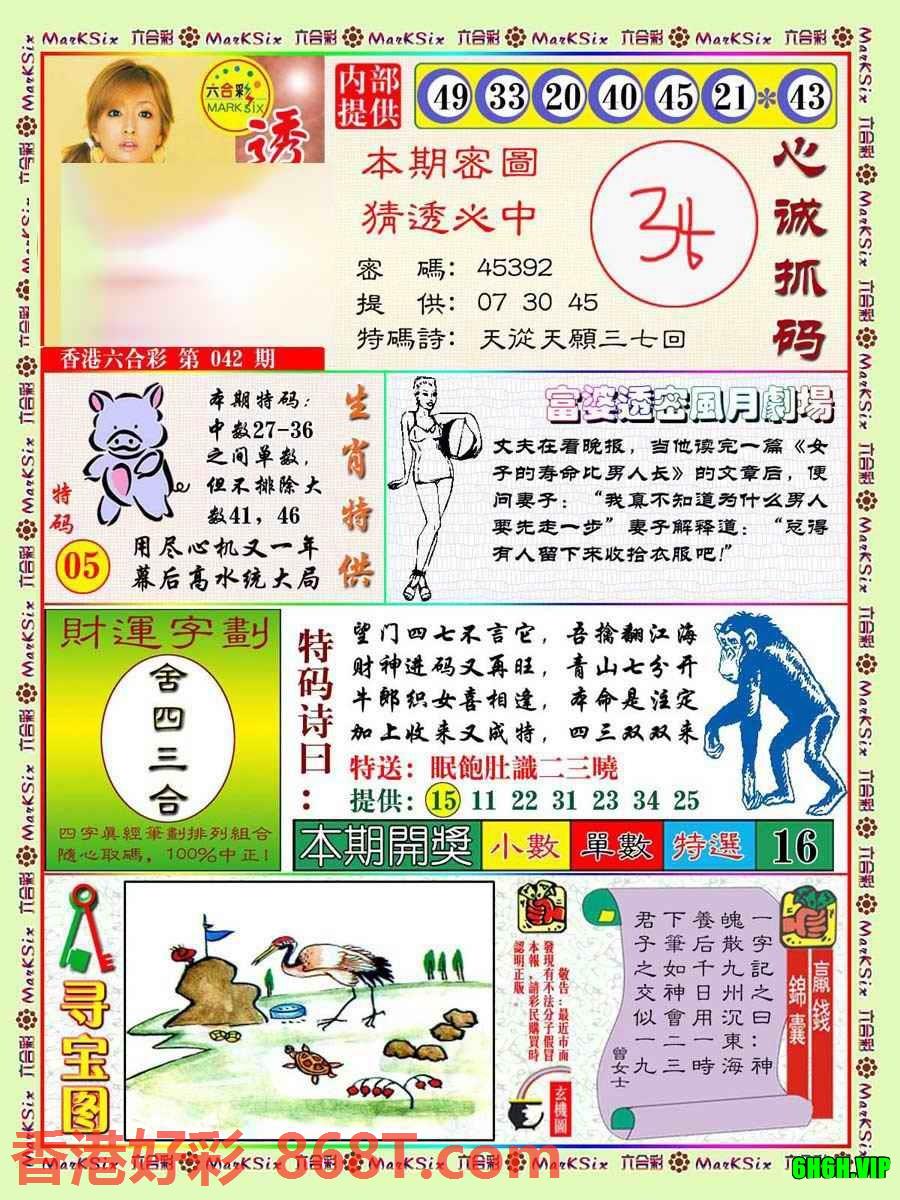 MarKSix 六合彩 MarKSix 六合彩 MarKSix 六合彩 MarKSix 六合彩 MarKSix 六合彩
六合彩
MARK SIX
诱
内部
提供
49 33 20 40 45 21 * 43
本期密圖
猜透必中
密 碼: 45392
提 供: 07 30 45
特碼詩: 天從天願三七回
心诚抓码
香港六合彩 第 042 期
特码
05
本期特码:
中数27-36
之间单数,
但不排除大
数41, 46
用尽心机又一年
幕后高水统大局
生肖特供
富婆透密風月劇場
丈夫在看晚报, 当他读完一篇《女
子的寿命比男人长》的文章后, 便
问妻子: “我真不知道为什么男人
要先走一步” 妻子解释道: “总得
有人留下来收拾衣服吧!”
財運字劃
舍四三合
四字眞經筆劃排列組合
隨心取碼, 100%中正!
特码诗曰:
望门四七不言它, 吾擒翻江海
财神进码又再旺, 青山七分开
牛郎织女喜相逢, 本命是注定
加上收来又成特, 四三双双来
特送: 眠飽肚識二三曉
提供: 15 11 22 31 23 34 25
本期開獎 小數 單數 特選 16
寻宝图
敬告:最近市面
發現有不法分子假冒
本報,請彩民購買時
認明正版。
玄機圖
一字記之曰:神
魄散九州沉東海
養后千日用一時
下筆如神會二三
君子之交似一九
曾女士
贏錢
錦囊
香港好彩 868T.com
6H6H.VIP
MarKSix 六合彩 MarKSix 六合彩 MarKSix 六合彩 MarKSix 六合彩 MarKSix 六合彩